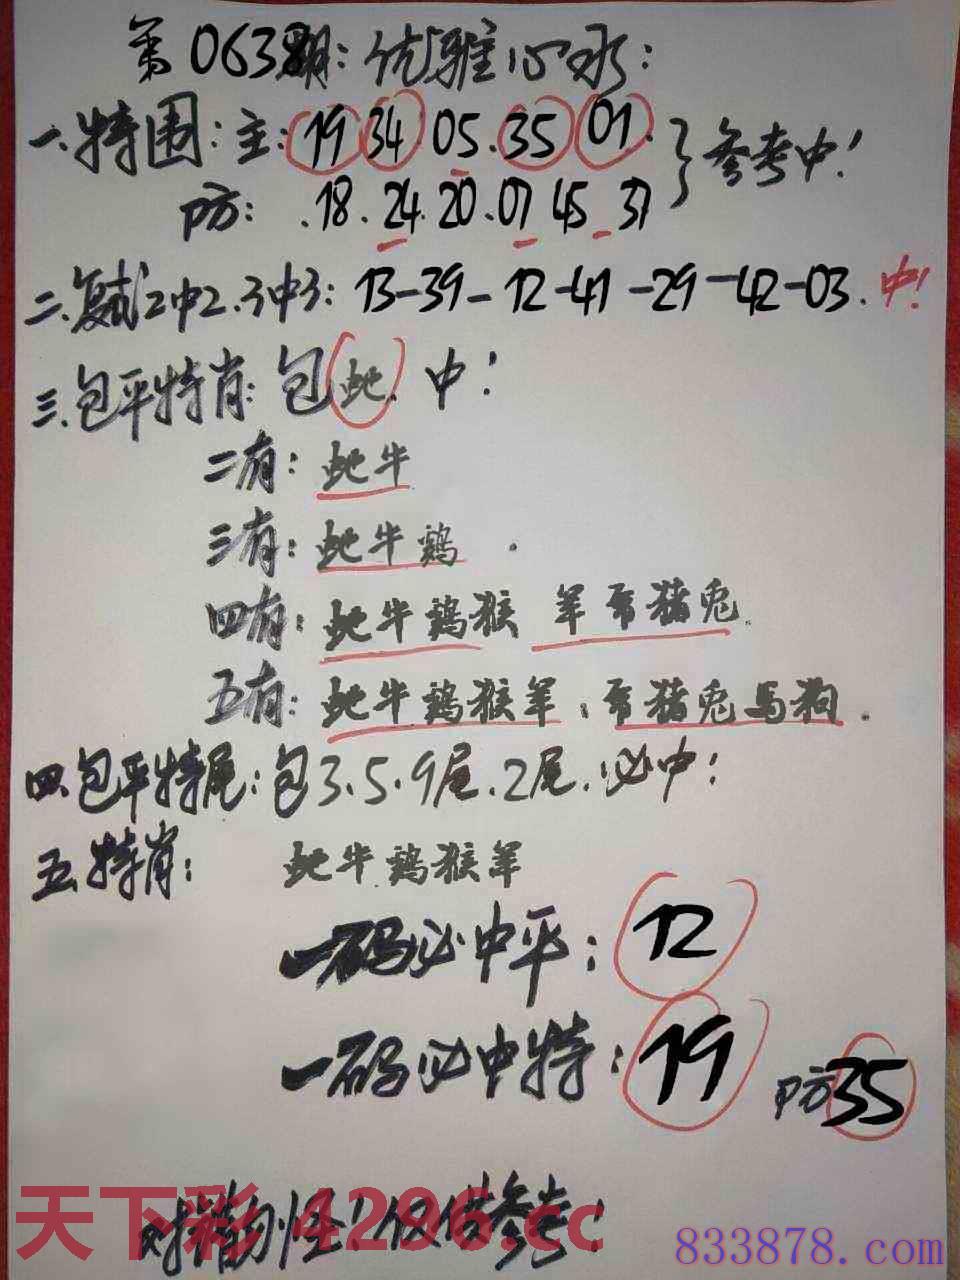 第0638期：优雅心水：
一、特围：主：19 34.05.35 01.
防：.18.24.20.07 45 37
参考中！
二、复试2中2.3中3：13-39-12-41-29-42-03.中！
三、包平特肖：包蛇.中！
二有：蛇牛
三有：蛇牛鸡.
四有：蛇牛鸡猴 羊 猪兔.
五有：蛇牛鸡猴羊： 猪兔马狗.
四、包平特尾：包3.5.9尾.2尾.必中！
五、特肖： 蛇牛.鸡猴羊
一码必中平：12
一码必中特：19 防35
对错勿怪！仅供参考！
天下彩4296.cc
833878.com